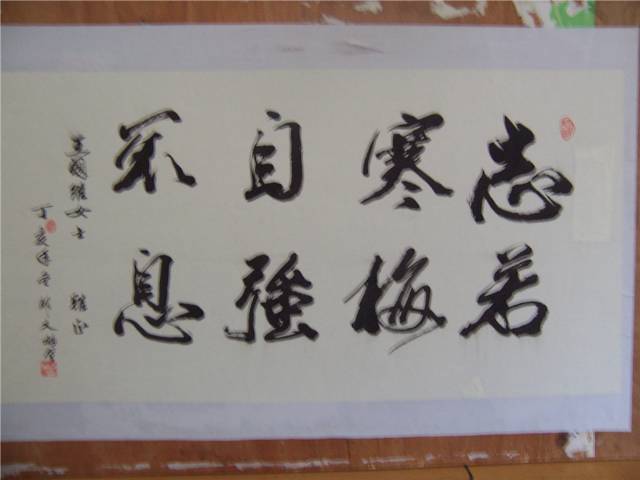 志若
寒梅
自強
不息
女士 雅正
丁亥年